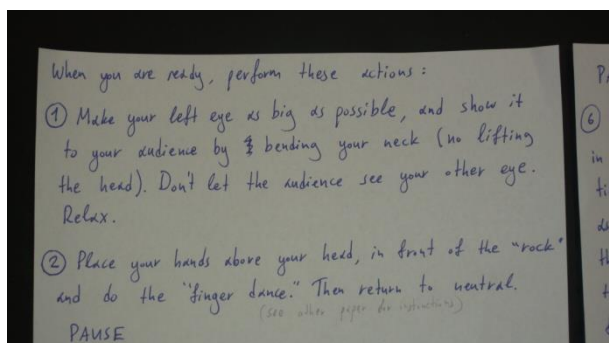 When you are ready, perform these actions :
① Make your left eye as big as possible, and show it
to your audience by bending your neck (no lifting
the head). Don't let the audience see your other eye.
Relax.
② Place your hands above your head, in front of the "rock"
and do the "finger dance." Then return to neutral.
(see other paper for instructions)
PAUSE
⑥
in